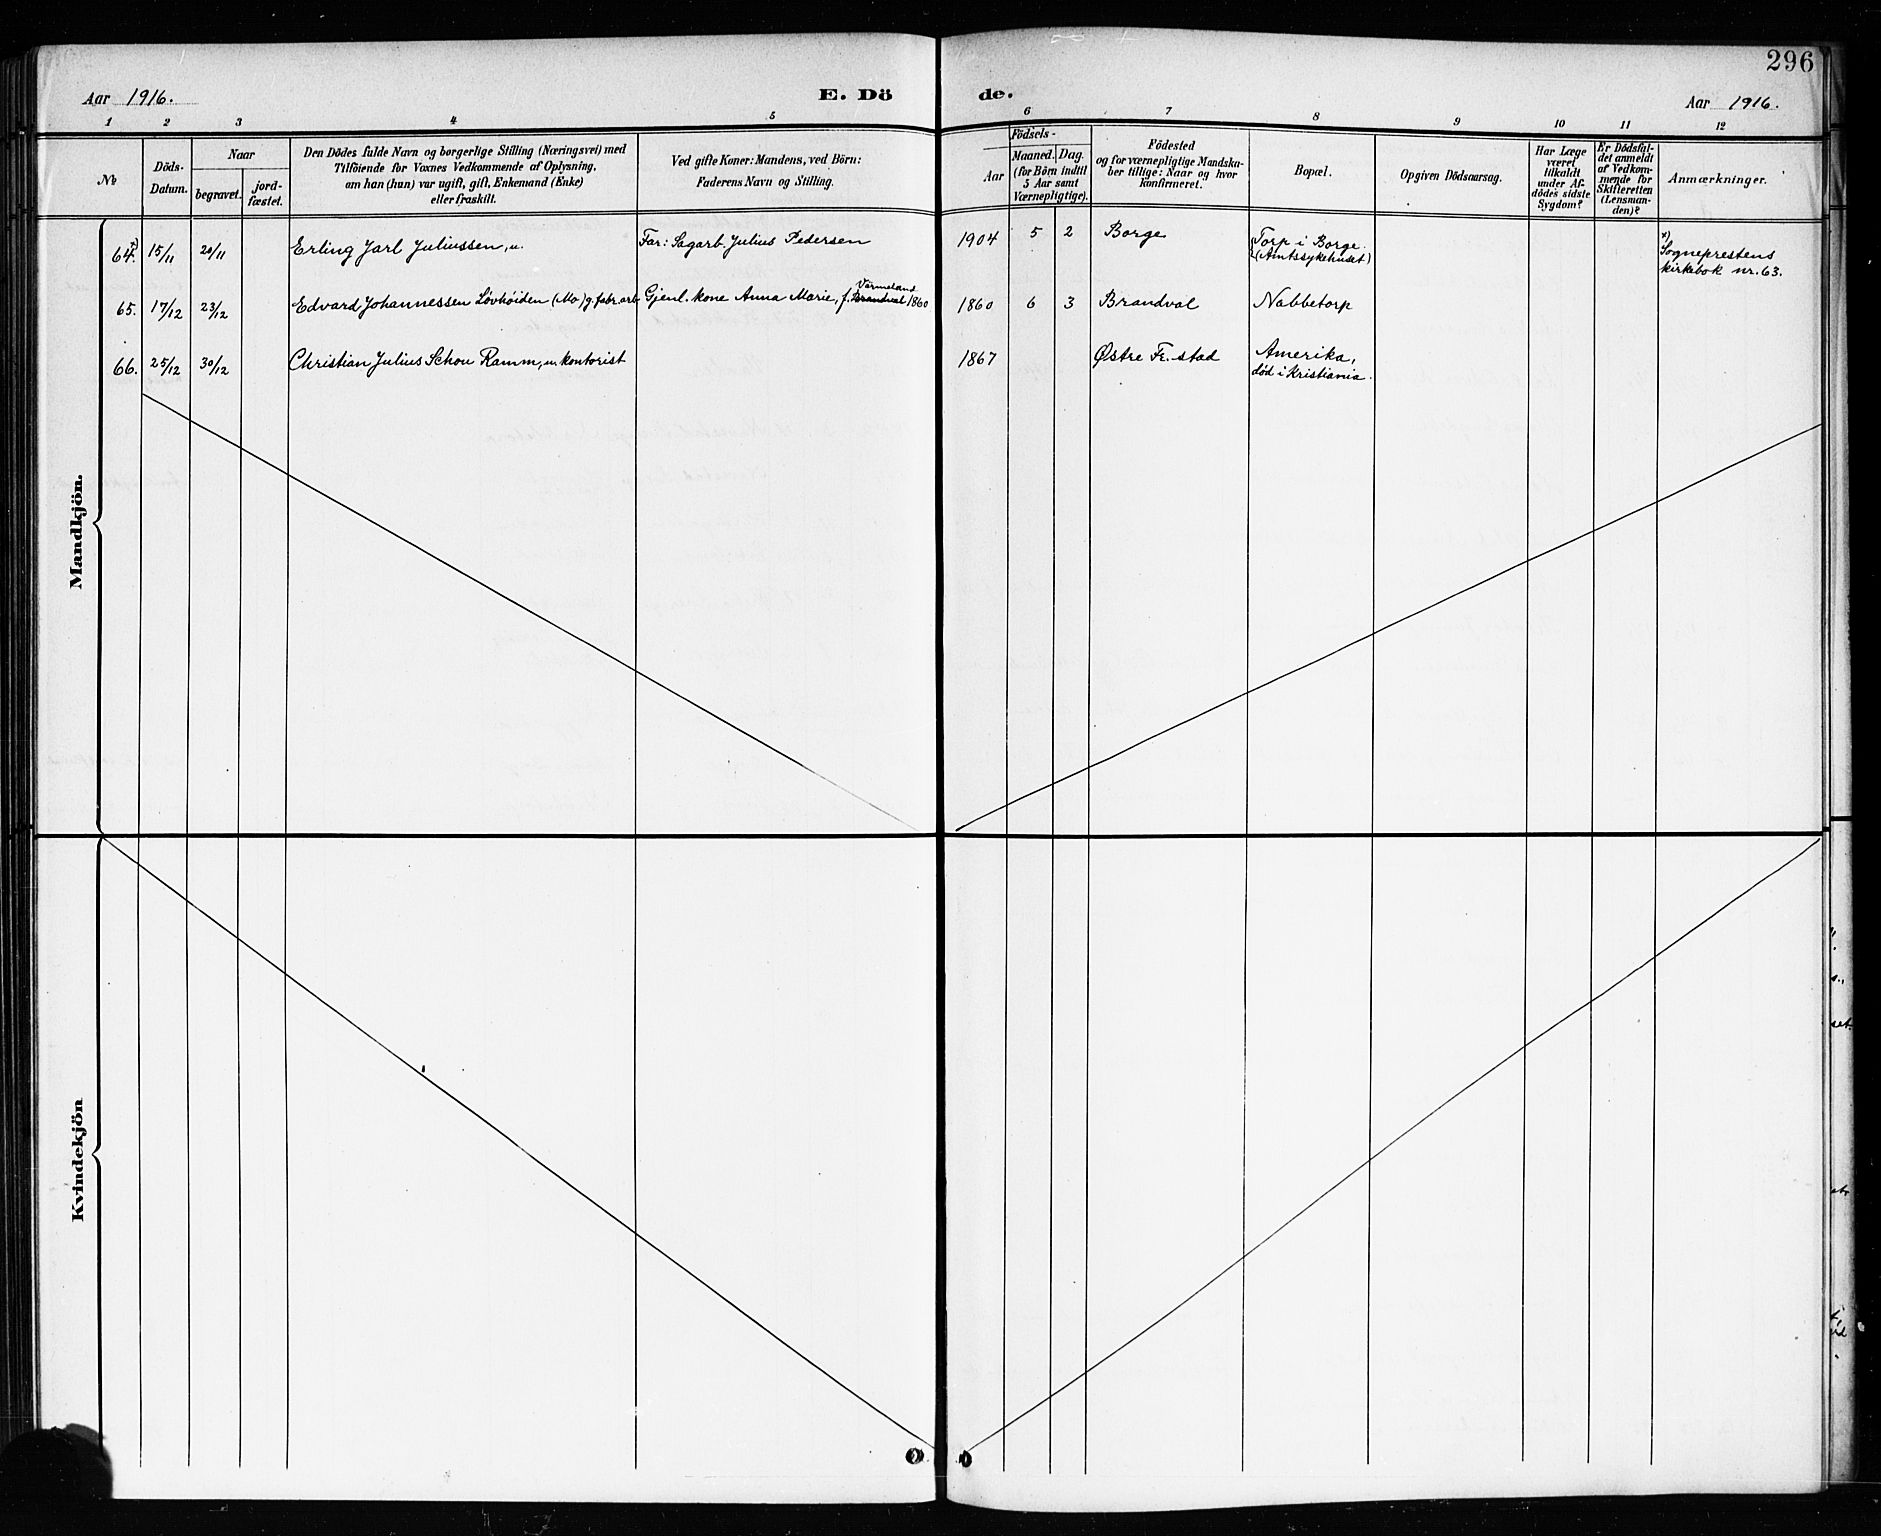 296
Aar 1916.
E. Dö
de.
Aar 1916.
1 2 3 4 5 6 7 8 9 10 11 12
№
Döds-
Datum.
Naar
begravet.
jord-
fæstet.
Den Dödes fulde Navn og borgerlige Stilling (Næringsvei) med
Tilföiende for Voxnes Vedkommende af Oplysning,
om han (hun) var ugift, gift, Enkemand (Enke)
eller fraskilt.
Ved gifte Koner: Mandens, ved Börn:
Faderens Navn og Stilling.
Födsels-
Aar
Maaned. Dag.
(for Börn indtil
5 Aar samt
Værnepligtige).
Födested
og for værnepligtige Mandska-
ber tillige: Naar og hvor
konfirmeret.
Bopæl.
Opgiven Dödsaarsag.
Har Læge
været
tilkaldt
under Af-
dödes sidste
Sygdom?
Er Dödsfal-
det anmeldt
af Vedkom-
mende for
Skifteretten
(Lensman-
den)?
Anmærkninger.
Mandkjön.
64. 15/11 20/11 Erling Jarl Juliussen, u. Far: Sagarb. Julius Pedersen 1904 5 2 Borge Torp i Borge.
(Amtssykehuset)
Sogneprestens
kirkebok nr. 63.
Värmeland
65. 17/12 23/12 Edvard Johannessen Lövhöiden (Mo) g. fabr. arb. Gjenl. kone Anna Marie, f. Brandval 1860 1860 6 3 Brandval Nabbetorp
66. 25/12 30/12 Christian Julius Schou Ramm, u. kontorist 1867 Østre Fr. stad Amerika,
död i Kristiania.
Kvindekjön